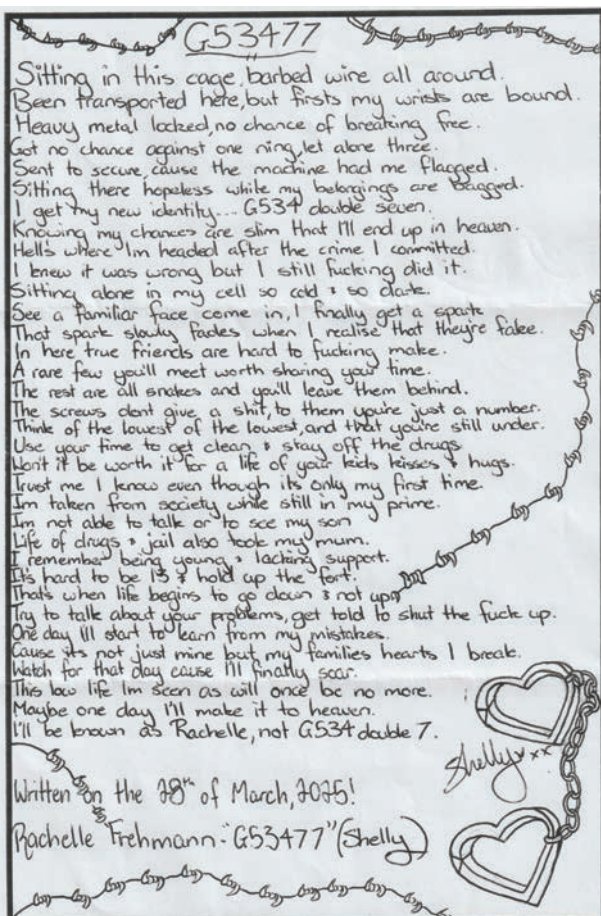 G53477
Sitting in this cage, barbed wire all around.
Been transported here, but firsts my wrists are bound.
Heavy metal locked, no chance of breaking free.
Got no chance against one ning, let alone three.
Sent to secure, cause the machine had me flagged.
Sitting there hopeless while my belongings are bagged.
I get my new identity... G534 double seven.
Knowing my chances are slim that I'll end up in heaven.
Hell's where Im headed after the crime I committed.
I knew it was wrong but I still fucking did it.
Sitting alone in my cell so cold & so dark.
See a familiar face come in, I finally get a spark
That spark slowly fades when I realise that theyre fake.
In here true friends are hard to fucking make.
A rare few you'll meet worth sharing your time.
The rest are all snakes and you'll leave them behind.
The screws dont give a shit, to them you're just a number.
Think of the lowest of the lowest, and that you're still under.
Use your time to get clean & stay off the drugs
Won't it be worth it for a life of your kids kisses & hugs.
Trust me I know even though its only my first time.
Im taken from society while still in my prime.
Im not able to talk or to see my son
Life of drugs & jail also took my mum.
I remember being young & lacking support.
It's hard to be 13 & hold up the fort.
Thats when life begins to go down & not up
Try to talk about your problems, get told to shut the fuck up.
One day I'll start to learn from my mistakes.
Cause its not just mine but my families hearts I break.
Watch for that day cause I'll finally soar.
This low life Im seen as will once be no more.
Maybe one day I'll make it to heaven.
I'll be known as Rachelle, not G534 double 7.
Shelly xxx
Written on the 28th of March, 2025!
Rachelle Frehmann - "G53477" (Shelly)